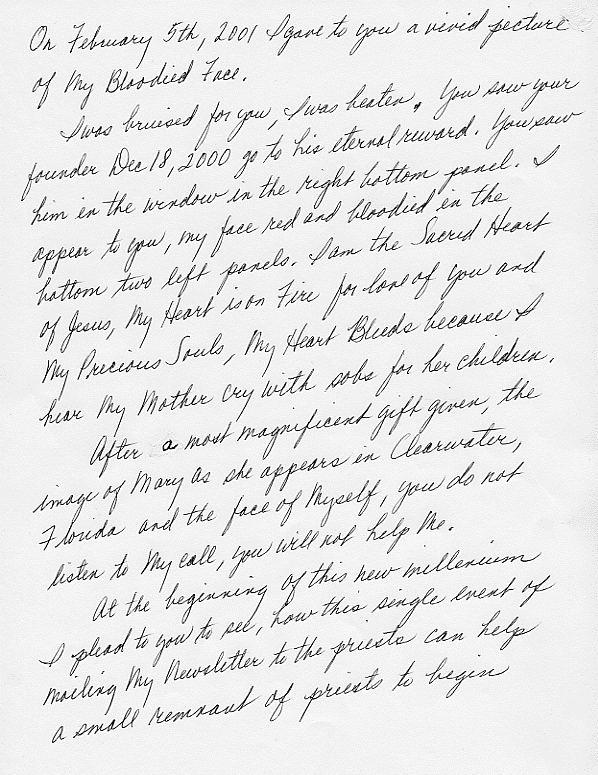 On February 5th, 2001 I gave to you a vivid picture
of My Bloodied Face.
I was bruised for you, I was beaten. You saw your
founder Dec 18, 2000 go to his eternal reward. You saw
him in the window in the right bottom panel. I
appear to you, my face red and bloodied in the
bottom two left panels. I am the Sacred Heart
of Jesus, My Heart is on Fire for love of you and
My Precious Souls, My Heart Bleeds because I
hear My Mother cry with sobs for her children.
After a most magnificent gift given, the
image of Mary as she appears in Clearwater,
Florida and the face of Myself, you do not
listen to My call, you will not help Me.
At the beginning of this new millenium
I plead to you to see, how this single event of
mailing My Newsletter to the priests can help
a small remnant of priests to begin